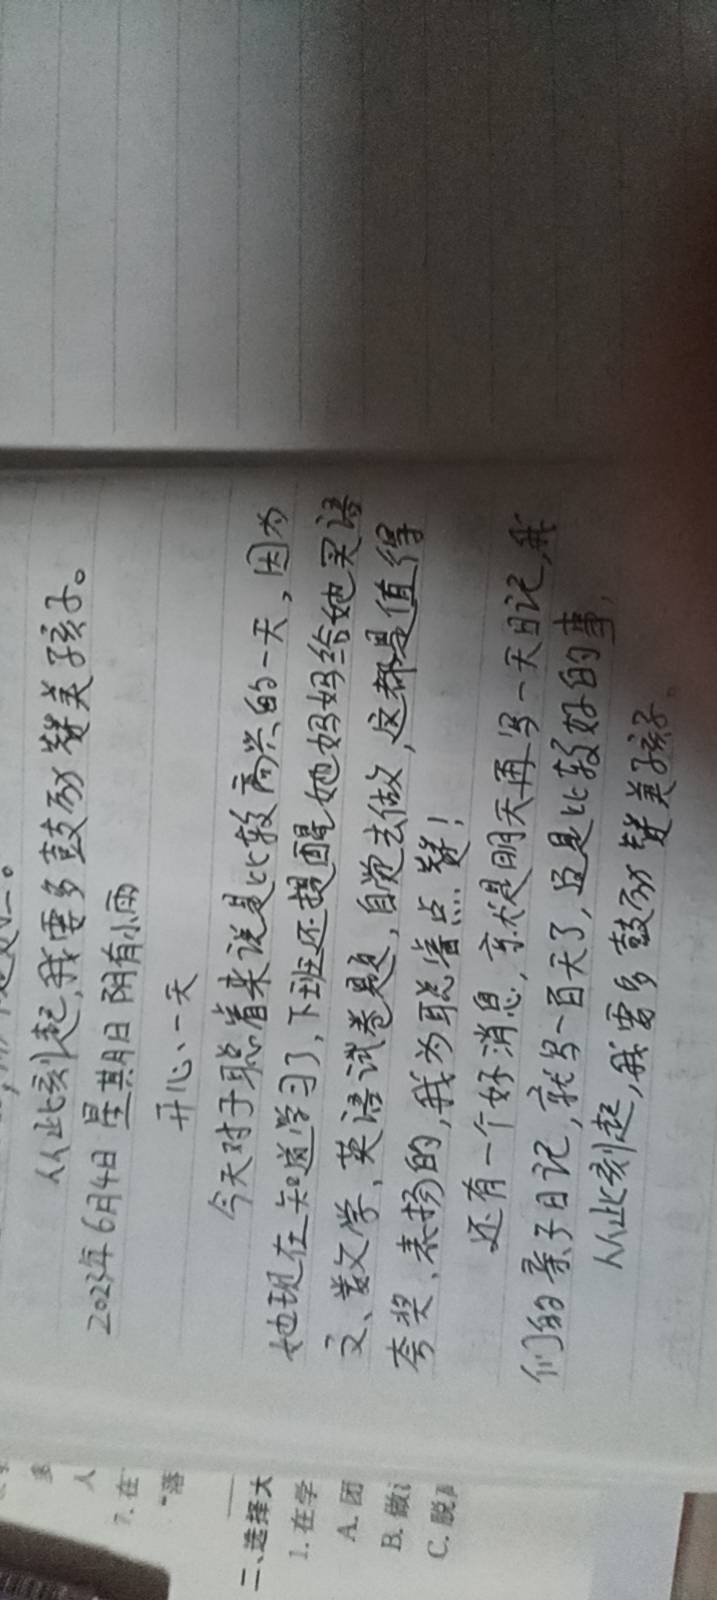 从此刻起,我要多鼓励赞美孩子。
2023年6月4日 星期日 阴有小雨
开心一天
今天对于聪睿来说是比较高兴的一天,因为
她现在知道学习了,下班还提醒她妈妈给她买语
文、数文学、英语试卷题,自觉去做,这都是值得
夸奖、表扬的,我为聪睿点赞!
还有一个好消息,就是明天再写一天日记,我
们的亲子日记,就写一百天了,这是比较好的事,
从此刻起,我要多鼓励赞美孩子。
人
7.在
“落
二、选择
1.在学
A.团
B.做
C.脱